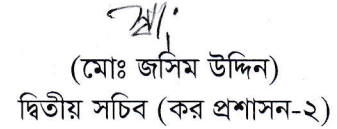 স্বাঃ
(মোঃ জসিম উদ্দিন)
দ্বিতীয় সচিব (কর প্রশাসন-২)